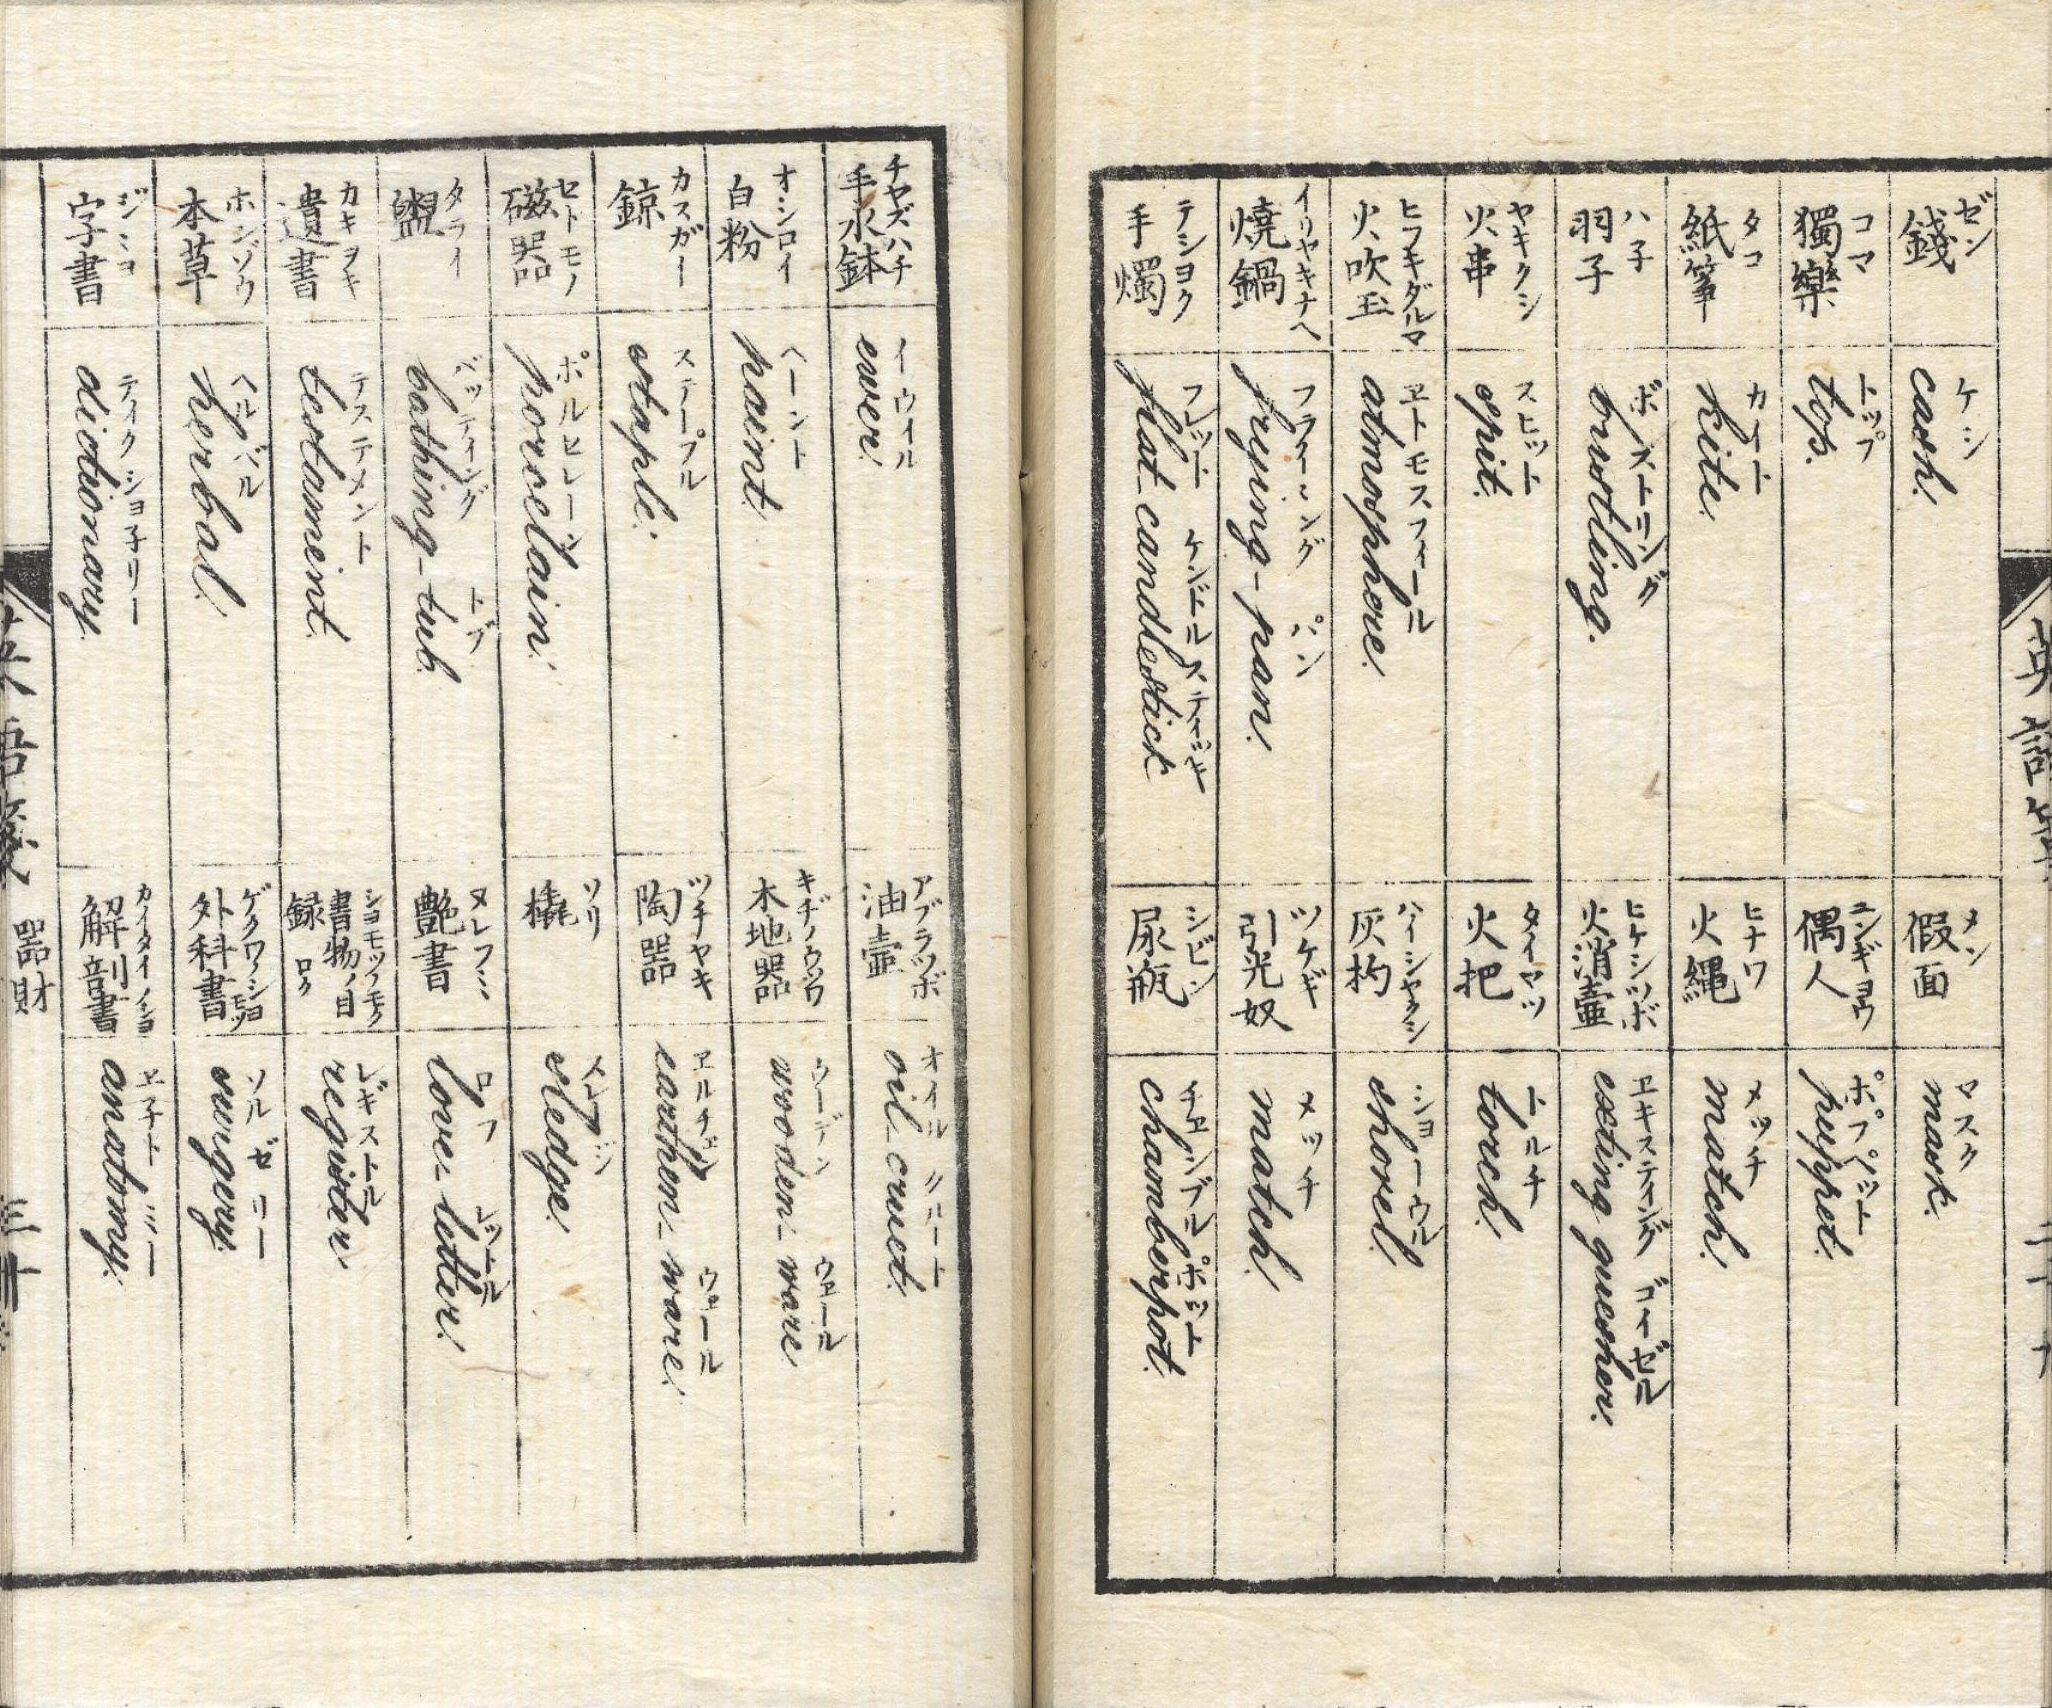 英語箋
二十九
ゼン
錢
ケシ
cash.
コマ
獨樂
トップ
top.
タコ
紙筝
カイト
kite.
ハ子
羽子
ボストリング
brustling.
ヤキクシ
火串
スヒット
spit.
ヒフキダルマ
火吹玉
ヱトモスフィール
atmosphere.
イリヤキナヘ
焼鍋
フライイング パン
frying-pan.
テショク
手燭
フレット ケンドル スティッキ
flat-candlestick
メン
假面
マスク
mask.
ニンギョウ
偶人
ポプペット
puppet.
ヒナワ
火縄
メッチ
match.
ヒケシツボ
火消壷
ヱキスティング ゴイゼル
exting guesher.
タイマツ
火把
トルチ
torch.
ハイシャクシ
灰杓
ショーウル
shovel.
ツケギ
引光奴
メッチ
match.
シビン
尿瓶
チヱンブル ポット
chamberpot.
チヤズハチ
手水鉢
イウイル
ewer.
オシロイ
白粉
ヘーント
paint.
カスガー
鍄
ステープル
staple.
セトモノ
磁器
ポルヒレーン
porcelain.
タライ
盥
ベッティング トブ
bathing-tub.
カキヲキ
遺書
テステメント
testament.
ホンゾウ
本草
ヘルバル
herbal.
ジミヨ
字書
ティクショ子リー
dictionary.
アブラツボ
油壷
オイル クルート
oil-cruet.
キヂノウツワ
木地器
ウーデン ウヱール
wooden-ware
ツチヤキ
陶器
ヱルチェン ウヱール
earthen-ware.
ソリ
橇
スレッジ
sledge.
ヌレフミ
艶書
ロフ レットル
love-letter.
ショモツノモクロク
書物ノ目録
レギストル
register
ゲクワノショモツ
外科書
ソルゼリー
surgery.
カイタイノショ
解剖書
ヱ子トミー
anatomy.
英語箋
器財
三十